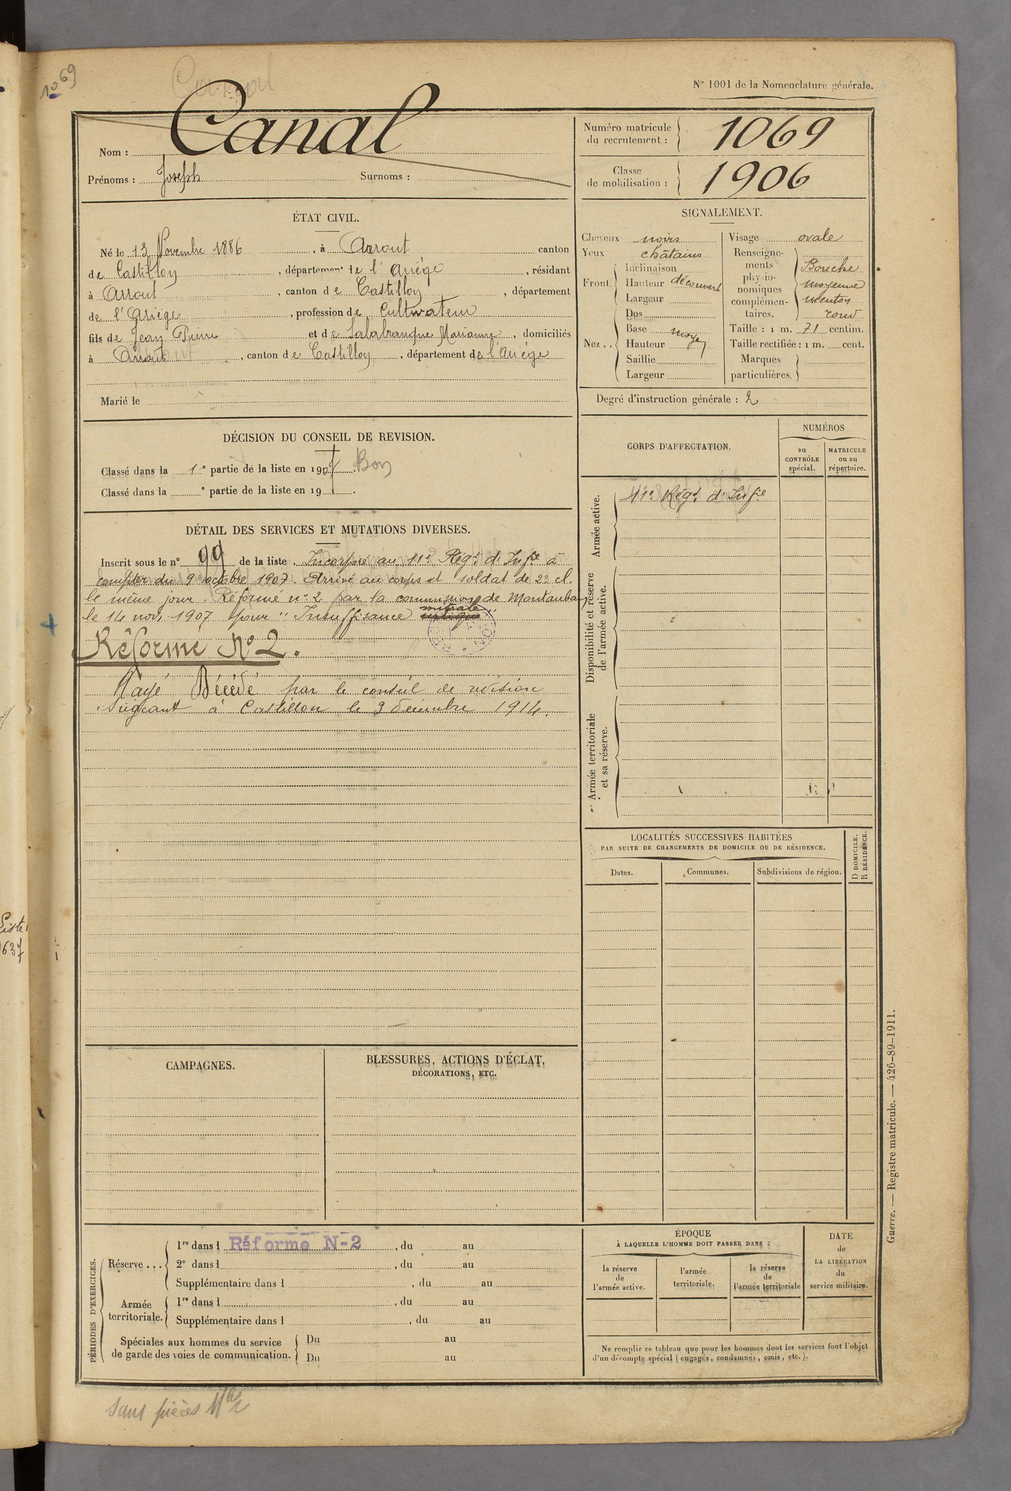 1069
Canal
N° 1001 de la Nomenclature générale.
Nom : Canal
Prénoms : Joseph Surnoms :
Numéro matricule du recrutement : 1069
Classe de mobilisation : 1906
ÉTAT CIVIL.
Né le 13 Novembre 1886, à Arrout canton
de Castillon, département de l'Ariège, résidant
à Arrout, canton de Castillon, département
de l'Ariège, profession de Cultivateur
fils de Jean Pierre et de Marianne, domiciliés
à Arrout, canton de Castillon, département de l'Ariège
Marié le
SIGNALEMENT.
Cheveux noirs
Yeux châtains
Front. Inclinaison
Hauteur découvert
Largeur
Nez.. Dos
Base moyen
Hauteur
Saillie
Largeur
Visage ovale
Renseignements physionomiques complémentaires. Bouche
moyenne
menton
rond
Taille : 1 m. 71 centim.
Taille rectifiée : 1 m. cent.
Marques particulières.
Degré d'instruction générale : 2
DÉCISION DU CONSEIL DE REVISION.
Classé dans la 1e partie de la liste en 1907 Bon
Classé dans la e partie de la liste en 19
DÉTAIL DES SERVICES ET MUTATIONS DIVERSES.
Inscrit sous le n° 99 de la liste. Incorporé au 11e Régt d'Infie à
compter du 9 octobre 1907. Arrivé au corps et soldat de 2e cl.
le même jour. Réformé n° 2 par la commission de Montauban
le 14 nov. 1907 pour "Insuffisance mitrale"
Réforme N° 2.
Rayé Décédé par le conseil de révision
siégeant à Castillon le 3 décembre 1914.
CORPS D'AFFECTATION.
NUMÉROS
au CONTRÔLE spécial.
MATRICULE ou au répertoire.
Armée active.
11e Régt d'Infie
Disponibilité et réserve de l'armée active.
Armée territoriale et sa réserve.
LOCALITÉS SUCCESSIVES HABITÉES
PAR SUITE DE CHANGEMENTS DE DOMICILE OU DE RÉSIDENCE.
Dates. Communes. Subdivisions de région.
D DOMICILE.
R RÉSIDENCE.
Liste
637
CAMPAGNES.
BLESSURES, ACTIONS D'ÉCLAT,
DÉCORATIONS, ETC.
PÉRIODES D'EXERCICES.
Réserve... 1re dans l Réforme N-2, du au
2e dans l, du au
Supplémentaire dans l, du au
Armée territoriale. 1re dans l, du au
Supplémentaire dans l, du au
Spéciales aux hommes du service de garde des voies de communication. Du au
Du au
ÉPOQUE
À LAQUELLE L'HOMME DOIT PASSER DANS :
la réserve de l'armée active.
l'armée territoriale.
la réserve de l'armée territoriale
DATE de LA LIBÉRATION du service militaire.
Ne remplir ce tableau que pour les hommes dont les services font l'objet
d'un décompte spécial (engagés, condamnés, omis, etc.).
Guerre. — Registre matricule. — 426-89-1911.
sans pièces